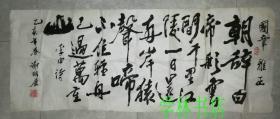 雅正
朝辞白
帝彩雲
間千里江
陵一日還
两岸猿
聲啼
不住轻舟
已過萬重
山
李白诗